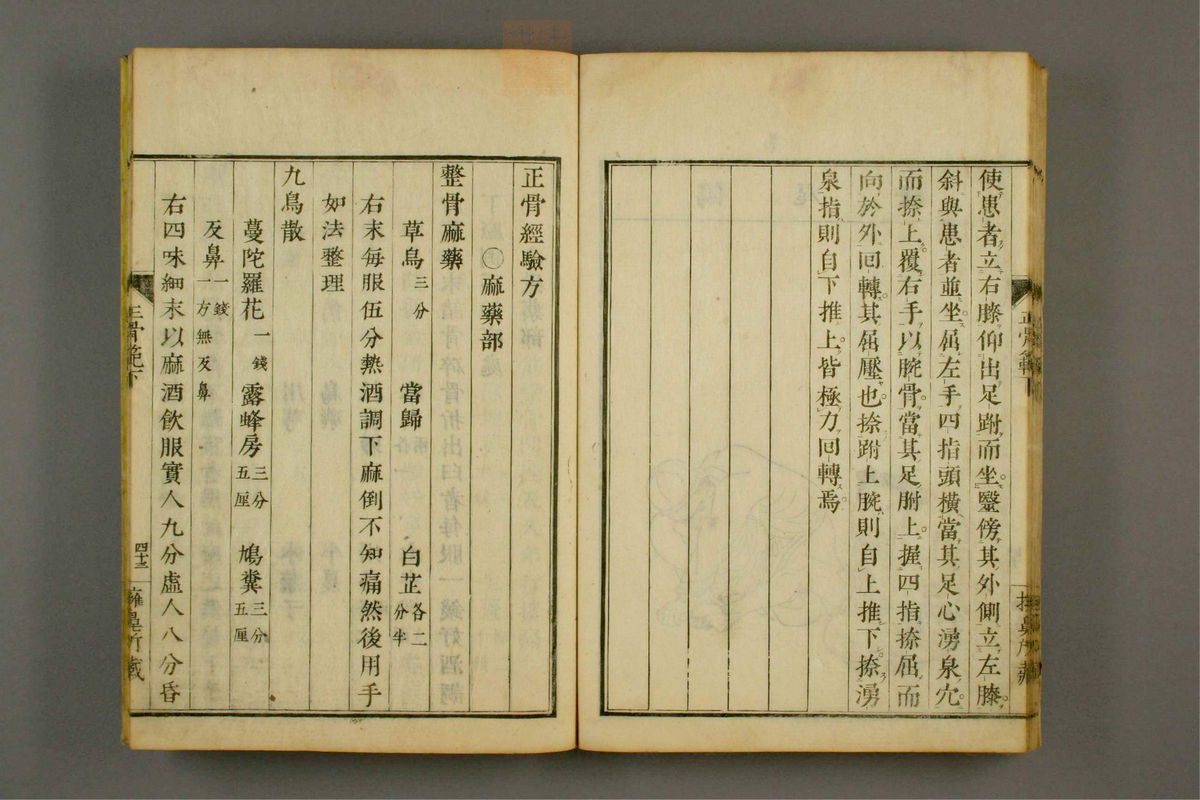 使患者立右膝仰出足跗而坐毉傍其外側立左膝
斜與患者並坐屈左手四指頭橫當其足心湧泉穴
而捺上覆右手以腕骨當其足跗上握四指捺屈而
向於外回轉其屈壓也捺跗上腕則自上推下捺湧
泉指則自下推上皆極力回轉焉
正骨經驗方
㊀麻藥部
整骨麻藥
草烏三分 當歸 白芷各二分半
右末每服伍分熱酒調下麻倒不知痛然後用手
如法整理
九烏散
蔓陀羅花一錢 露蜂房三分五厘 鳩糞三分五厘
反鼻一錢一方無反鼻
右四味細末以麻酒飲服實人九分虛人八分昏
正骨範下
四十三